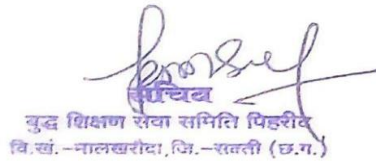 सचिव
बुद्ध शिक्षण सेवा समिति पिहरीद
वि.खं.-मालखरौदा, जि.-सक्ती (छ.ग.)